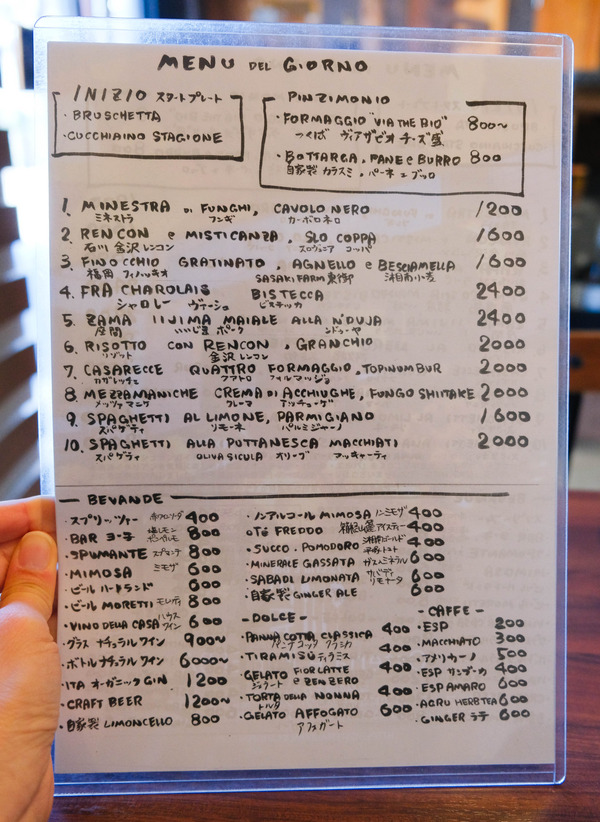 MENU DEL GIORNO
INIZIO スタートプレート
・BRUSCHETTA
・CUCCHIAINO STAGIONE
PINZIMONIO
・FORMAGGIO "VIA THE BIO" 800～
つくば ヴィアザビオ チーズ盛
・BOTTARGA, PANE e BURRO 800
自家製 カラスミ、パーネ エ ブッロ
1. MINESTRA DI FUNGHI, CAVOLO NERO 1200
ミネストラ フンギ カーボロネロ
2 RENCON e MISTICANZA, SLO COPPA 1600
石川 金沢レンコン スロヴェニア コッパ
3 FINOCCHIO GRATINATO, AGNELLO e BESCIAMELLA 1600
福岡 フィノッキオ SASAKI FARM 湘南小麦
4. FRA CHAROLAIS BISTECCA 2400
シャロレー ヴァーシュ ビステッカ
5. ZAMA IIJIMA MAIALE ALLA N'DUJA 2400
座間 いいじま ポーク ンドゥーヤ
6. RISOTTO CON RENCON, GRANCHIO 2000
リゾット 金沢レンコン
7. CASARECCE QUATTRO FORMAGGIO, TOPINUMBUR 2000
カザレッチェ クアトロ フォルマッジョ
8 MEZZAMANICHE CREMA DI ACCHIUGHE, FUNGO SHIITAKE 2000
メッツァマニケ クレーマ アッチューゲ
9. SPAGHETTI AL LIMONE, PARMIGIANO 1600
スパゲティ リモーネ パルミジャーノ
10. SPAGHETTI ALLA PUTTANESCA MACCHIATI 2000
スパゲティ OLIVA SICULA オリーブ
BEVANDE
・スプリッツァー 赤ワインソーダ 400
・BAR ヨーヨ 800
・SPUMANTE スプマンテ 800
・MIMOSA ミモザ 600
・ビール ハートランド 600
・ビール MORETTI モレッティ 800
・VINO DELLA CASA ハウスワイン 600
・グラス ナチュラルワイン 900～
・ボトルナチュラルワイン 6000～
・ITA オーガニック GIN 1200
・CRAFT BEER 1200～
・自家製 LIMONCELLO 800
・ノンアルコール MIMOSA ノンミモザ 400
・Té FREDDO アイスティー 400
・SUCCO. POMODORO 400
・MINERALE GASSATA ガスミネラル 600
・SABADI LIMONATA サバディ リモナータ 600
・自家製 GINGER ALE 600
- DOLCE -
・PANNA COTTA CLASSICA 400
パンナコッタ クラシカ
・TIRAMISÙ ティラミス 400
・GELATO FIOR LATTE e ZENZERO 400
ジェラート
・TORTA DELLA NONNA 400
トルタ
・GELATO AFFOGATO 600
アフォガート
- CAFFE -
・ESP 200
・MACCHIATO 300
・アメリカーノ 500
・ESP サンブーカ 400
・ESP AMARO 600
・AGRU HERB TEA 600
・GINGER ラテ 600